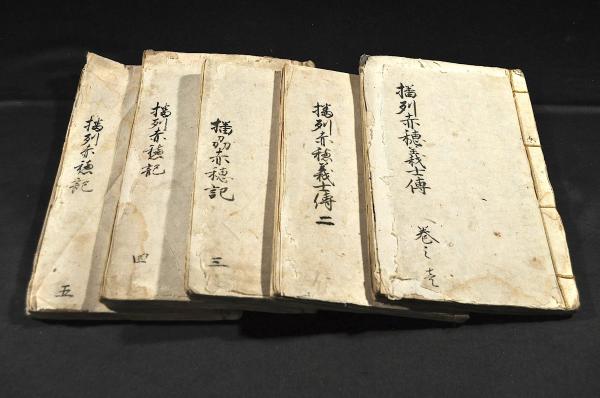 播列赤穂義士傳
巻之壱
播列赤穂義士傳
二
播刕赤穂記
三
播列赤穂記
四
播列赤穂記
五